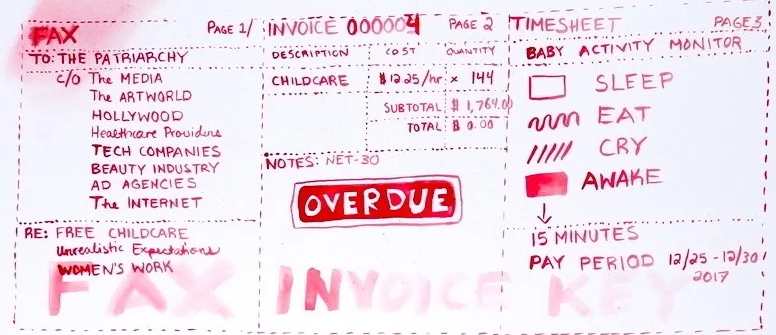 FAX
PAGE 1/
TO: THE PATRIARCHY
c/o The MEDIA
The ARTWORLD
HOLLYWOOD
Healthcare Providers
TECH COMPANIES
BEAUTY INDUSTRY
AD AGENCIES
The INTERNET
RE: FREE CHILDCARE
Unrealistic Expectations
WOMEN'S WORK
INVOICE 000004
PAGE 2
DESCRIPTION COST QUANTITY
CHILDCARE $12.25/hr x 144
SUBTOTAL $ 1,764.00
TOTAL $ 0.00
NOTES: NET-30
OVERDUE
TIMESHEET
PAGE 3
BABY ACTIVITY MONITOR
SLEEP
EAT
CRY
AWAKE
15 MINUTES
PAY PERIOD 12/25-12/30
2017
FAX INVOICE KEY